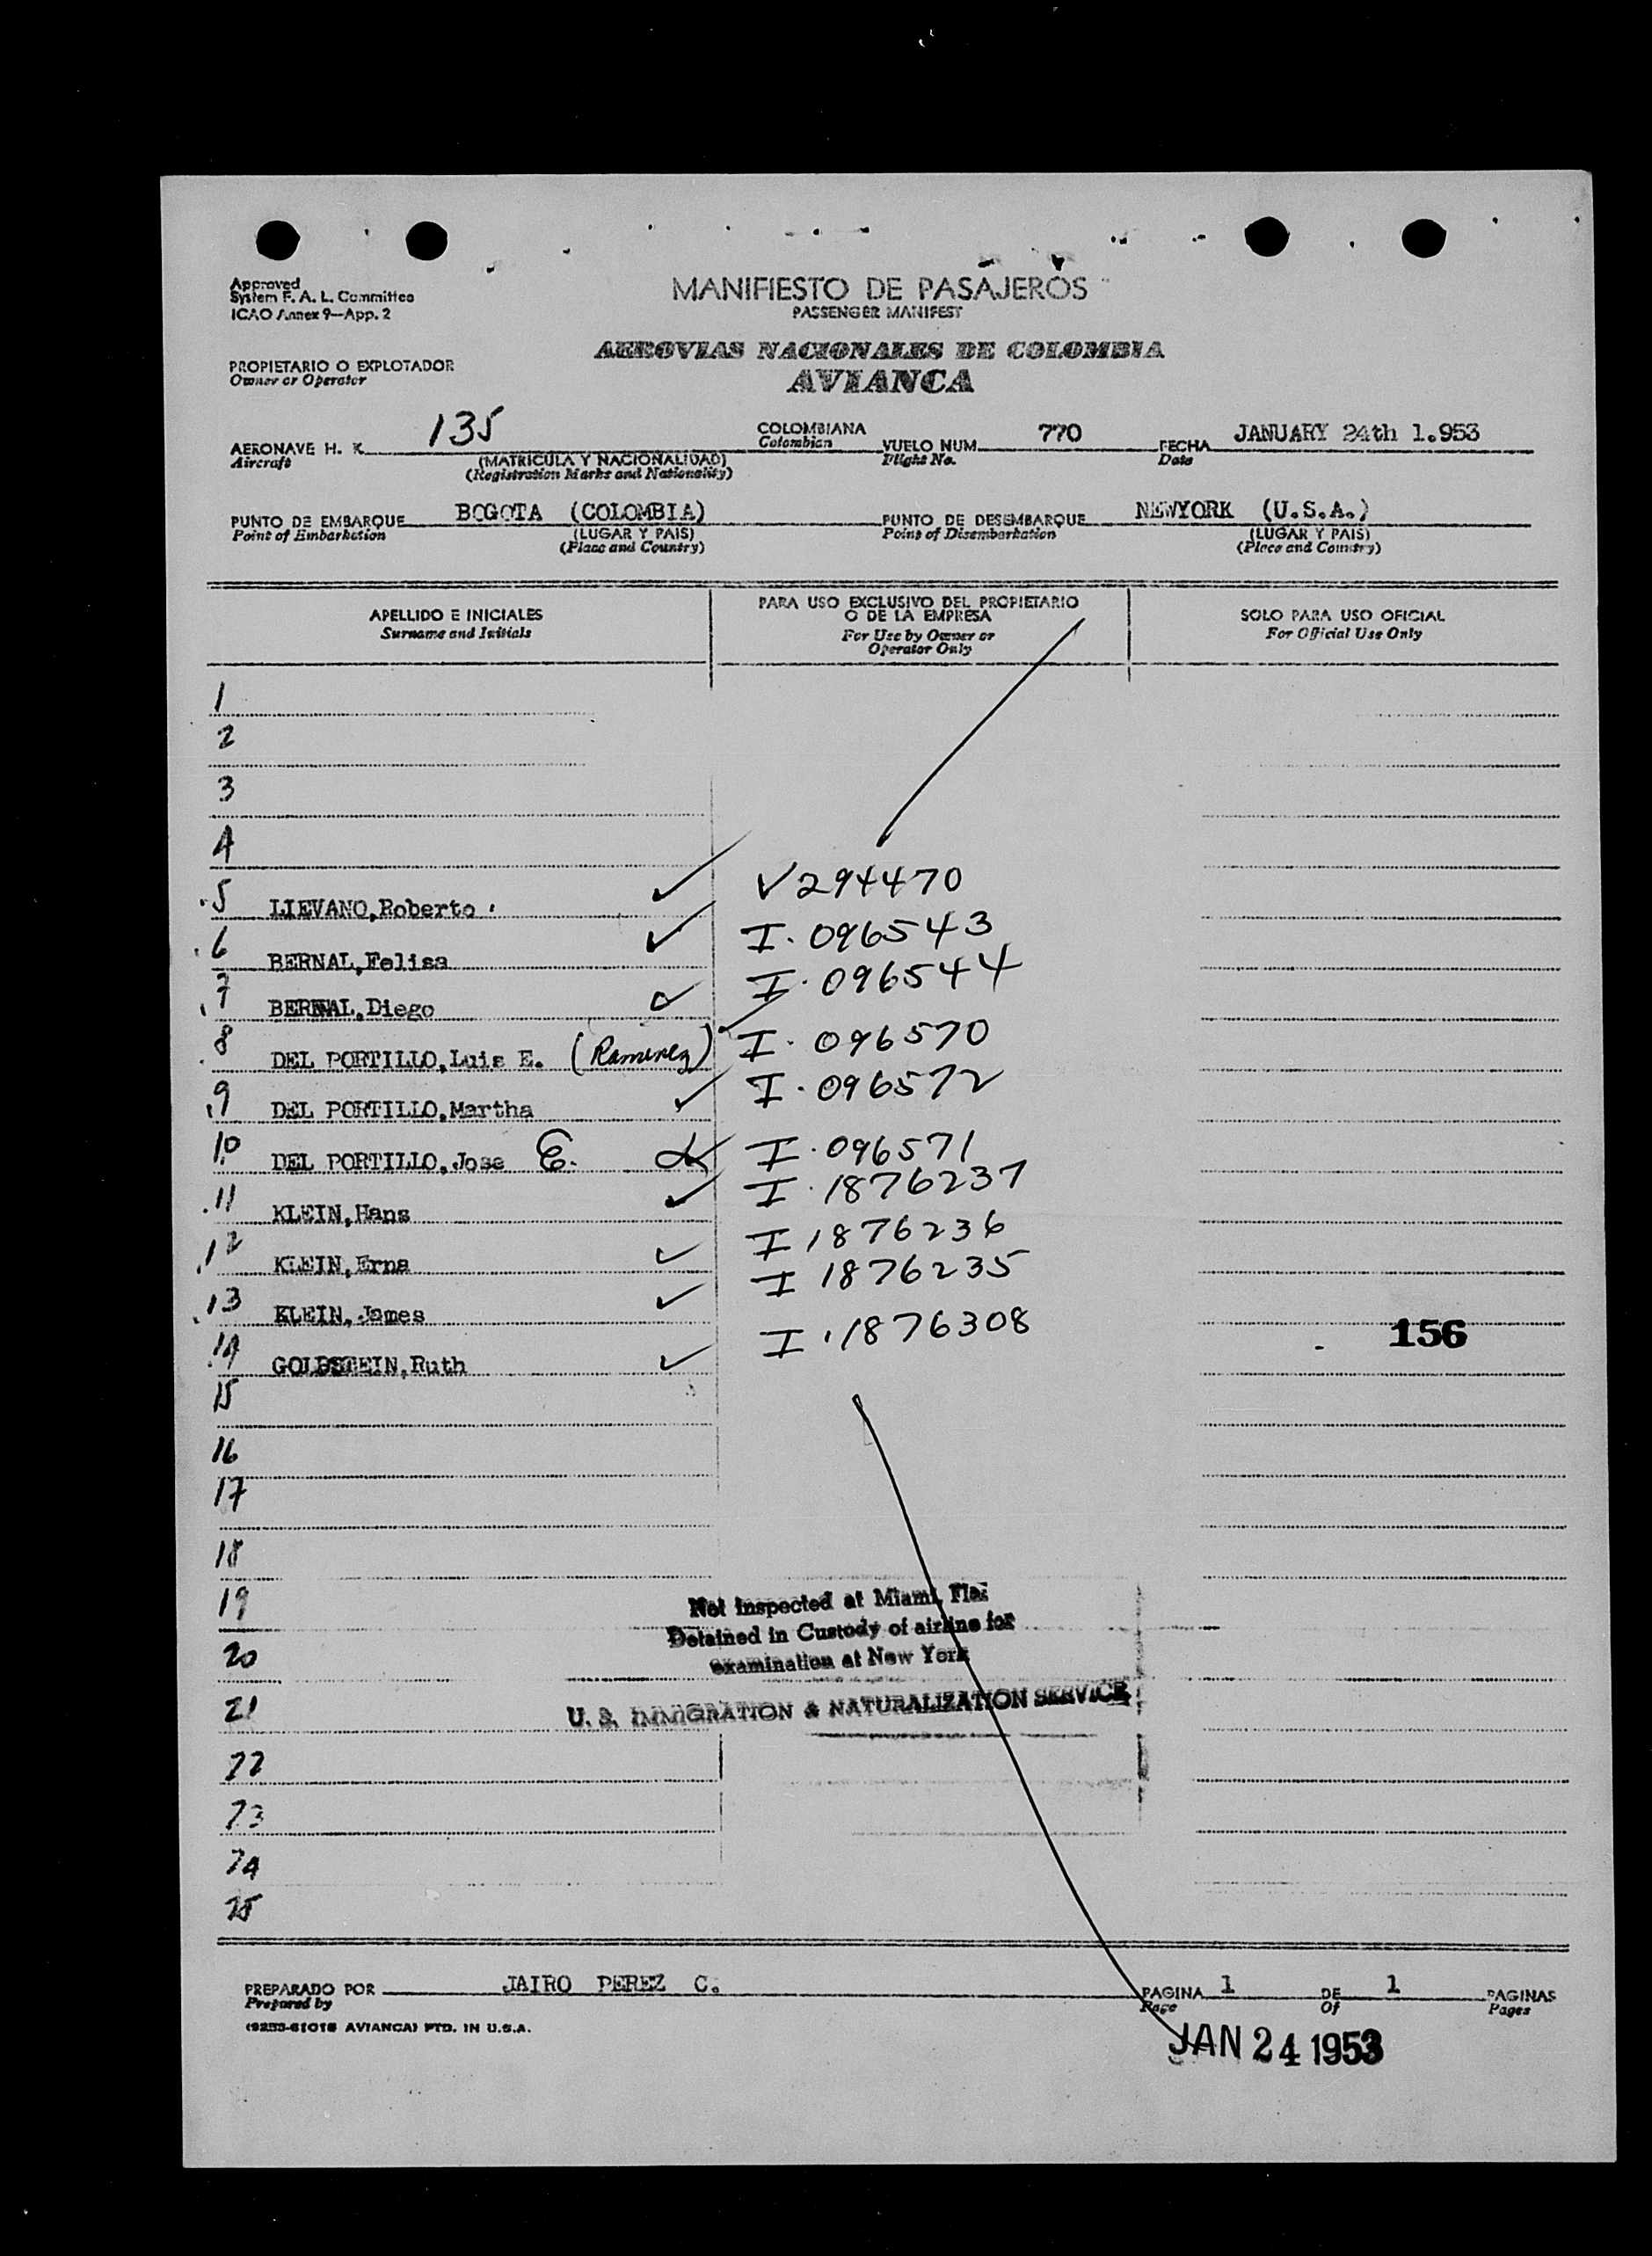 Approved
System F. A. L. Committee
ICAO Annex 9—App. 2
MANIFIESTO DE PASAJEROS
PASSENGER MANIFEST
AEROVIAS NACIONALES DE COLOMBIA
AVIANCA
PROPIETARIO O EXPLOTADOR
Owner or Operator
AERONAVE H. K. 135 COLOMBIANA VUELO NUM. 770 FECHA JANUARY 24th 1.953
Aircraft (MATRICULA Y NACIONALIDAD) Colombian Flight No. Date
(Registration Marks and Nationality)
PUNTO DE EMBARQUE BOGOTA (COLOMBIA) PUNTO DE DESEMBARQUE NEWYORK (U.S.A.)
Point of Embarkation (LUGAR Y PAIS) Point of Disembarkation (LUGAR Y PAIS)
(Place and Country) (Place and Country)
APELLIDO E INICIALES
Surname and Initials
PARA USO EXCLUSIVO DEL PROPIETARIO
O DE LA EMPRESA
For Use by Owner or
Operator Only
SOLO PARA USO OFICIAL
For Official Use Only
1
2
3
4
5 LIEVANO,Roberto V294470
6 BERNAL,Felisa I. 096543
7 BERNAL,Diego I. 096544
8 DEL PORTILLO,Luis E. (Ramirez) I. 096570
9 DEL PORTILLO,Martha I. 096572
10 DEL PORTILLO,Jose E. I. 096571
11 KLEIN,Hans I. 1876237
12 KLEIN,Erna I 1876236
13 KLEIN,James I 1876235
14 GOLDSTEIN,Ruth I. 1876308
156
15
16
17
18
19
20
21
22
23
24
25
Not Inspected at Miami, Fla.
Detained in Custody of airline for
examination at New York
U. S. IMMIGRATION & NATURALIZATION SERVICE
PREPARADO POR JAIRO PEREZ C. PAGINA 1 DE 1 PAGINAS
Prepared by Page Of Pages
AVIANCA) PTD. IN U.S.A.
JAN 24 1953